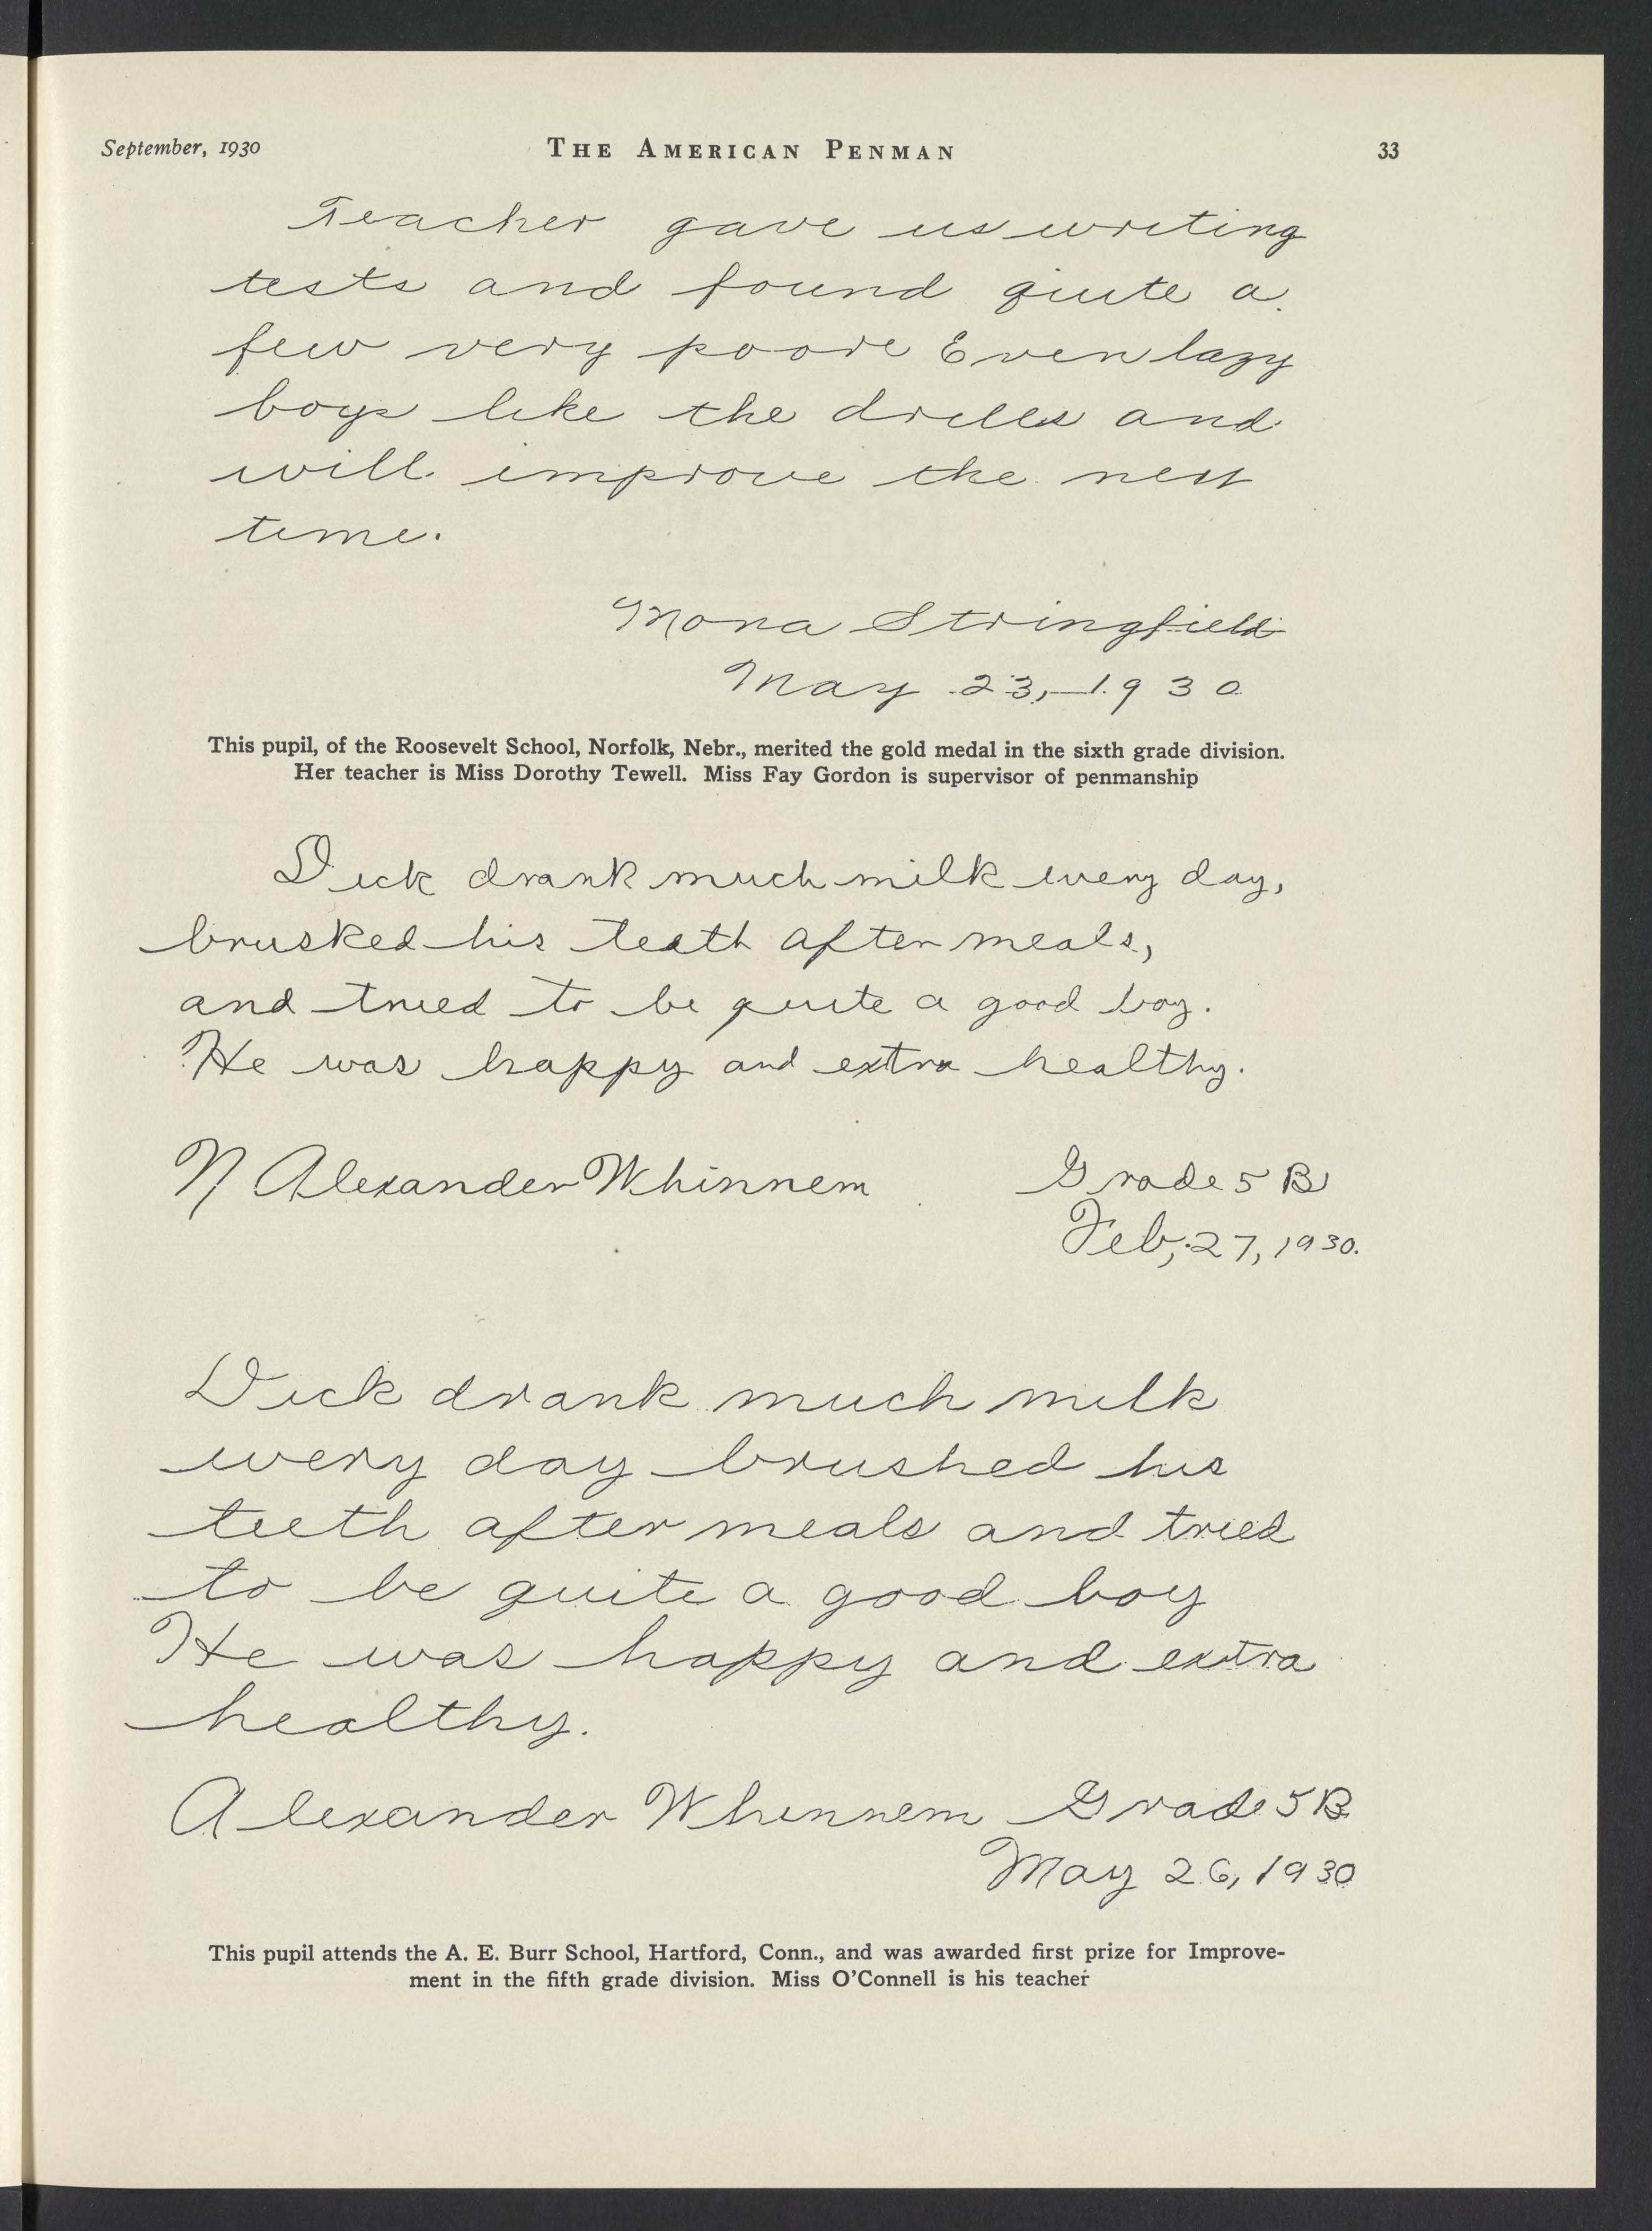 September, 1930 THE AMERICAN PENMAN 33
Teacher gave us writing
tests and found quite a
few very poor. Even lazy
boys like the drills and
will improve the next
time.
Mona Stringfield
May 23, 1930
This pupil, of the Roosevelt School, Norfolk, Nebr., merited the gold medal in the sixth grade division.
Her teacher is Miss Dorothy Tewell. Miss Fay Gordon is supervisor of penmanship
Dick drank much milk every day,
brushed his teeth after meals,
and tried to be quite a good boy.
He was happy and extra healthy.
N Alexander Whinnem Grade 5 B
Feb, 27, 1930.
Dick drank much milk
every day brushed his
teeth after meals and tried
to be quite a good boy
He was happy and extra
healthy.
Alexander Whinnem Grade 5 B
May 26, 1930
This pupil attends the A. E. Burr School, Hartford, Conn., and was awarded first prize for Improve-
ment in the fifth grade division. Miss O'Connell is his teacher